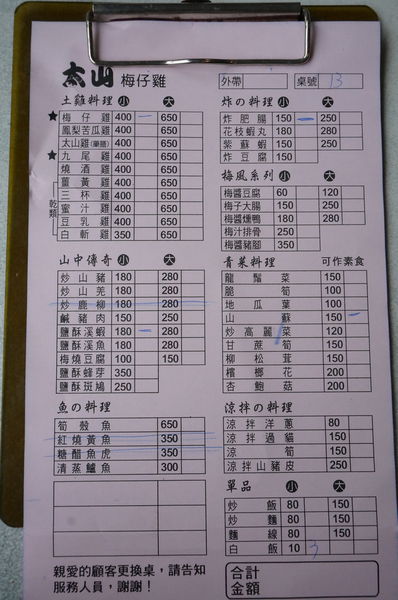 太山 梅仔雞
外帶
桌號 13
土雞料理 小 大
★ 梅仔雞 400 650
鳳梨苦瓜雞 400 650
太山雞(藥膳) 400 650
★ 九尾雞 400 650
燒酒雞 400 650
薑黃雞 400 650
乾類
三杯雞 400 650
蜜汁雞 400 650
豆乳雞 400 650
白斬雞 350 650
山中傳奇 小 大
炒山豬 180 280
炒山羌 180 280
炒鹿柳 180 280
鹹豬肉 150 250
鹽酥溪蝦 180 280
鹽酥溪魚 180 280
梅燒豆腐 100 150
鹽酥蜂芽 350
鹽酥斑鳩 250
魚の料理
筍殼魚 650
紅燒黃魚 350
糖醋魚虎 350
清蒸鱸魚 300
親愛的顧客更換桌，請告知
服務人員，謝謝！
炸の料理 小 大
炸肥腸 150 250
花枝蝦丸 180 280
紫蘇蝦 150 250
炸豆腐 150
梅風系列 小 大
梅醬豆腐 60 120
梅子大腸 150 250
梅醬燻鴨 180 280
梅汁排骨 250
梅醬豬腳 350
青菜料理 可作素食
龍鬚菜 150
脆筍 100
地瓜葉 100
山蘇 150
炒高麗菜 120
甘蔗筍 150
柳松茸 150
檳榔花 200
杏鮑菇 200
涼拌の料理
涼拌洋蔥 80
涼拌過貓 150
涼筍 150
涼拌山豬皮 250
單品 小 大
炒飯 80 150
炒麵 80 150
麵線 80 150
白飯 10
合計
金額